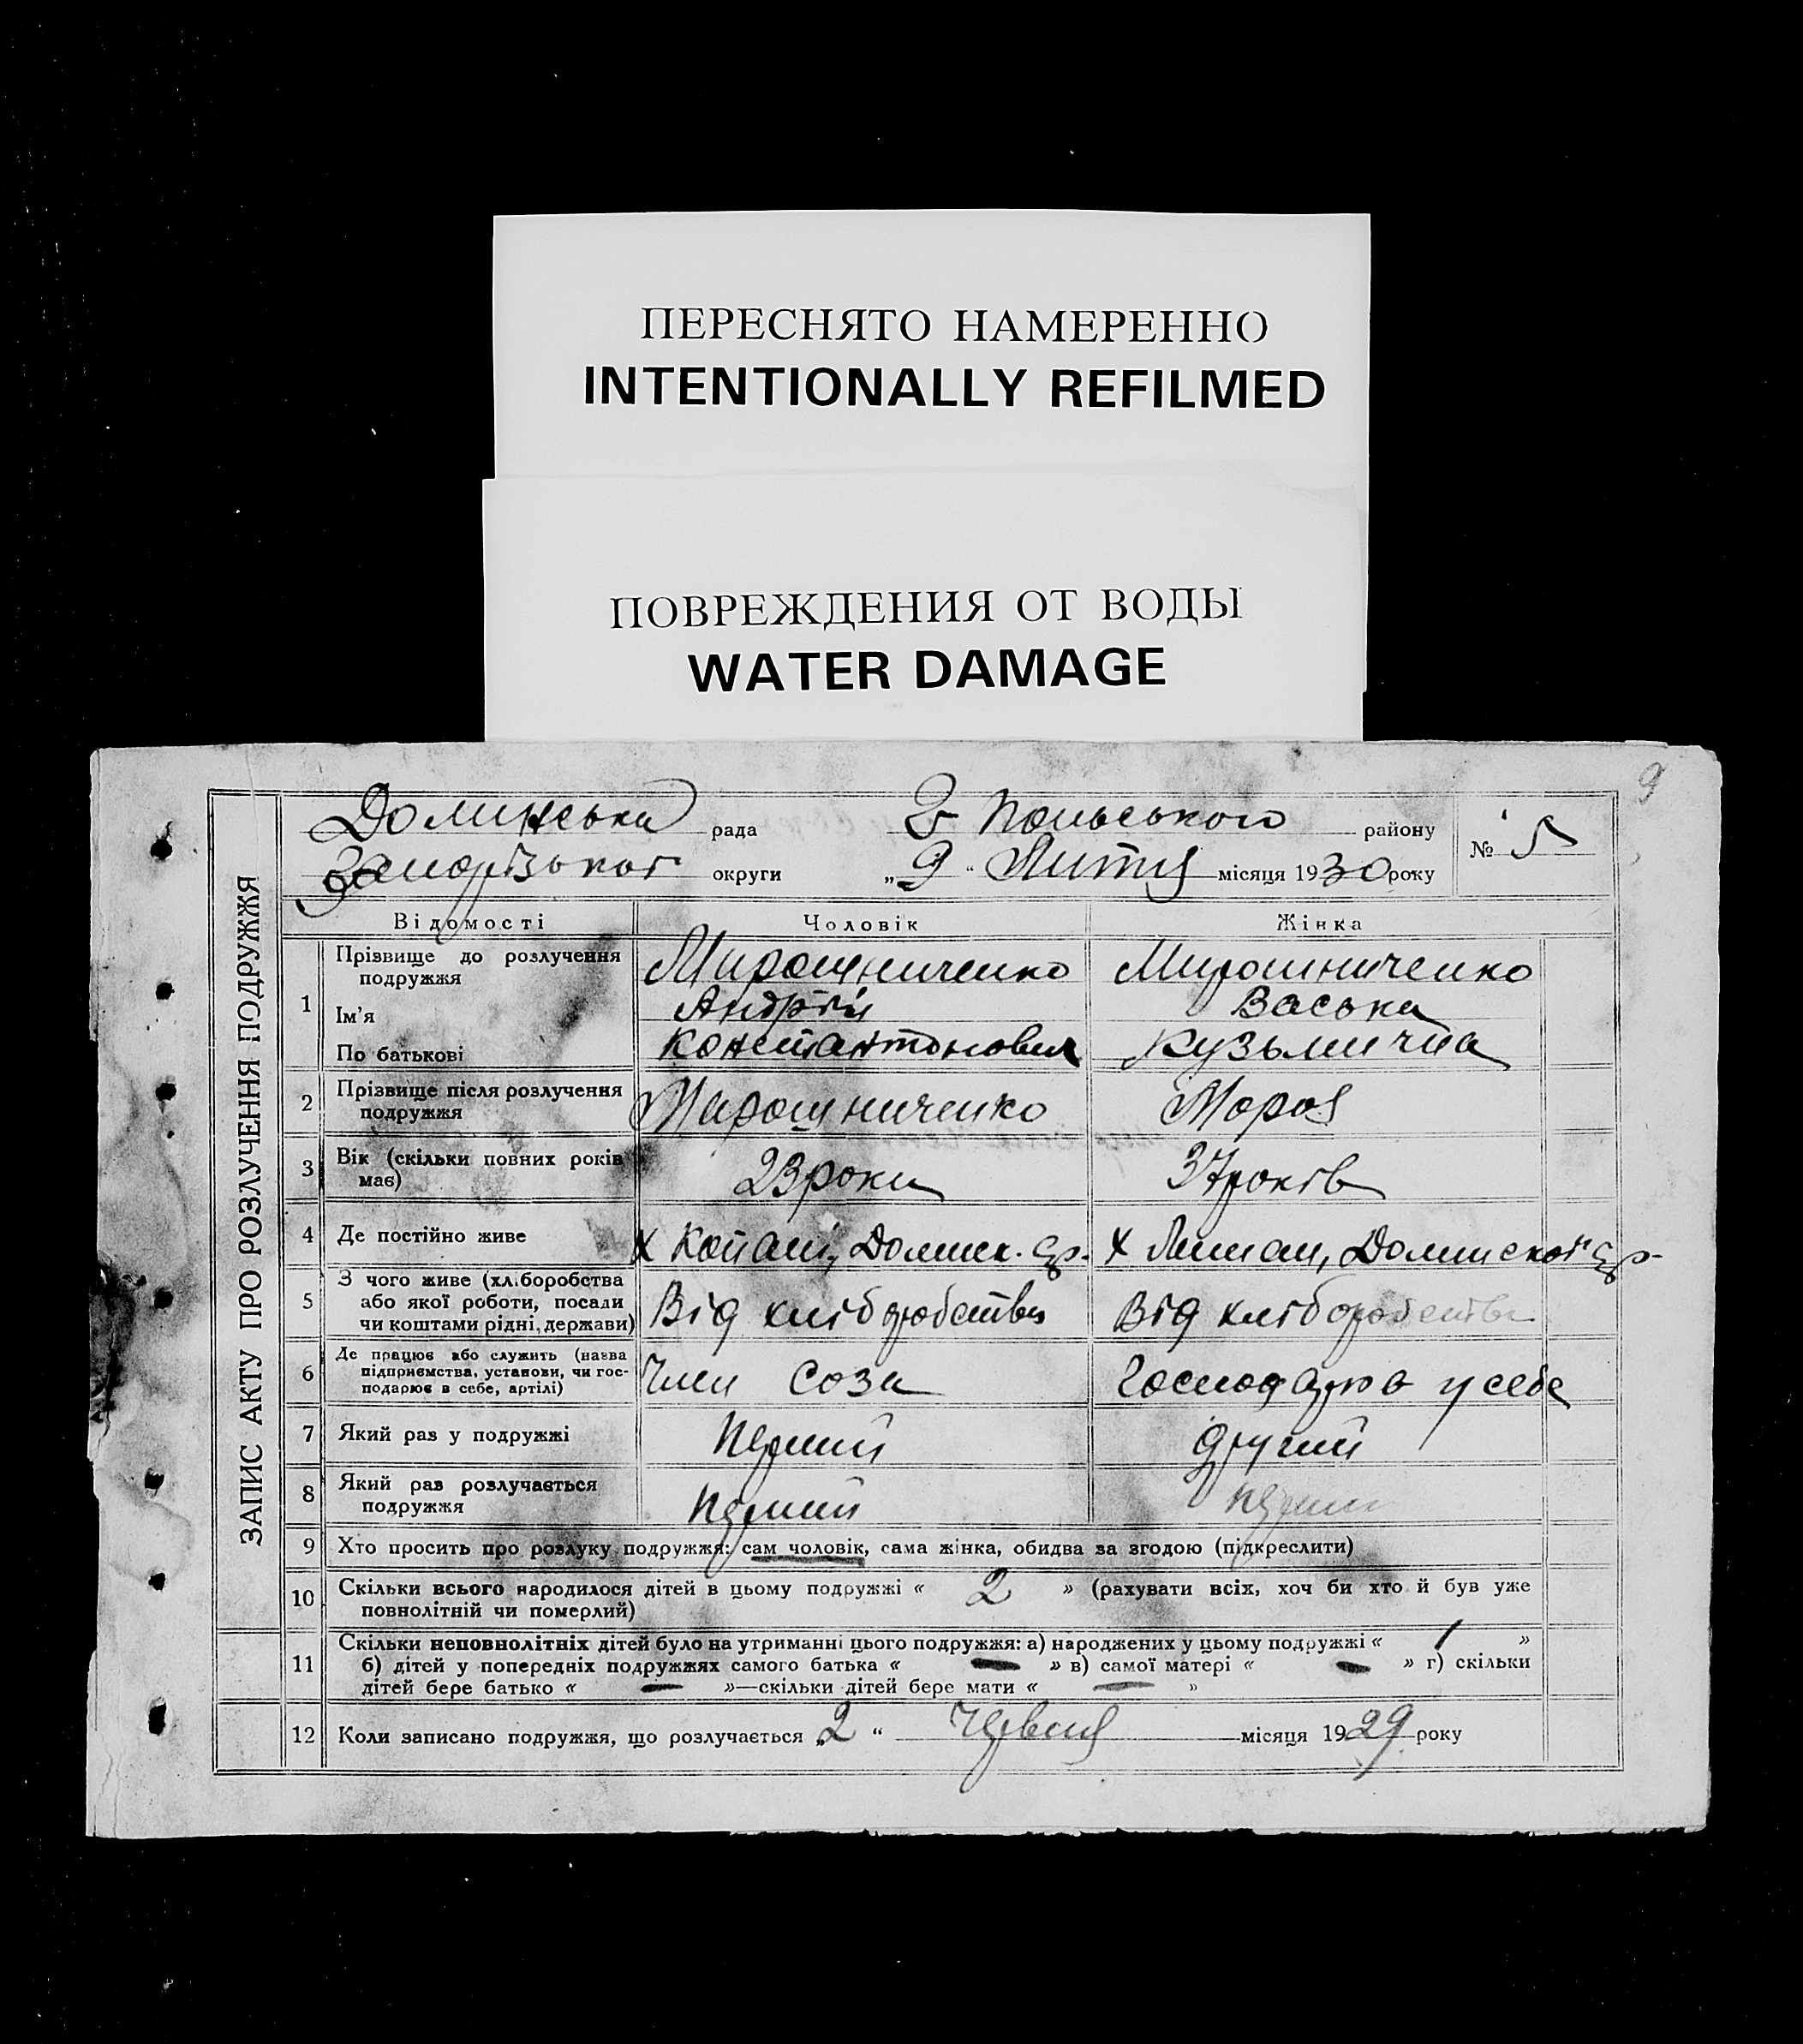 ПЕРЕСНЯТО НАМЕРЕННО
INTENTIONALLY REFILMED
ПОВРЕЖДЕНИЯ ОТ ВОДЫ
WATER DAMAGE
9
ЗАПИС АКТУ ПРО РОЗЛУЧЕННЯ ПОДРУЖЖЯ
Долинська рада Г Польського району № 5
Запорізької округи „9“ Лютня місяця 1930 року
Відомості Чоловік Жінка
1 Прізвище до розлучення подружжя Мирошниченко Мирошниченко
Ім'я Андрій Васька
По батькові Константинович Кузьмична
2 Прізвище після розлучення подружжя Мирошниченко Мороз
3 Вік (скільки повних років має) 23 роки 37 років
4 Де постійно живе х Копані, Долинск. с/р. х Лиман, Долинской с/р.
5 З чого живе (хліборобства або якої роботи, посади чи коштами рідні, держави) Від хліборобства Від хліборобства
6 Де працює або служить (назва підприємства, установи, чи господарює в себе, артілі) Член Соза Господарює у себе
7 Який раз у подружжі перший другий
8 Який раз розлучається подружжя перший перший
9 Хто просить про розлуку подружжя: сам чоловік, сама жінка, обидва за згодою (підкреслити)
10 Скільки всього народилося дітей в цьому подружжі « 2 » (рахувати всіх, хоч би хто й був уже
повнолітній чи померлий)
11 Скільки неповнолітніх дітей було на утриманні цього подружжя: а) народжених у цьому подружжі « 1 »
б) дітей у попередніх подружжях самого батька « — » в) самої матері « — » г) скільки
дітей бере батько « — »—скільки дітей бере мати « — »
12 Коли записано подружжя, що розлучається „2“ Червня місяця 1929 року